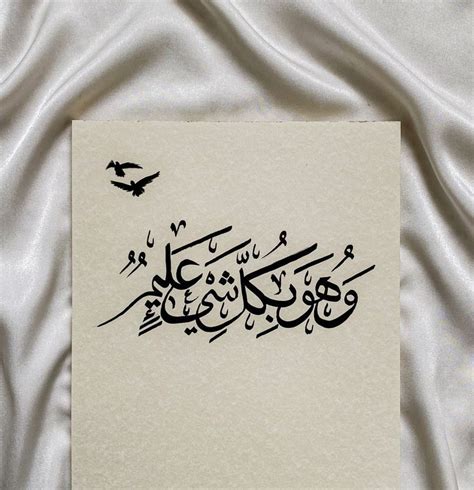 وَهُوَ بِكُلِّ شَيْءٍ عَلِيمٌ